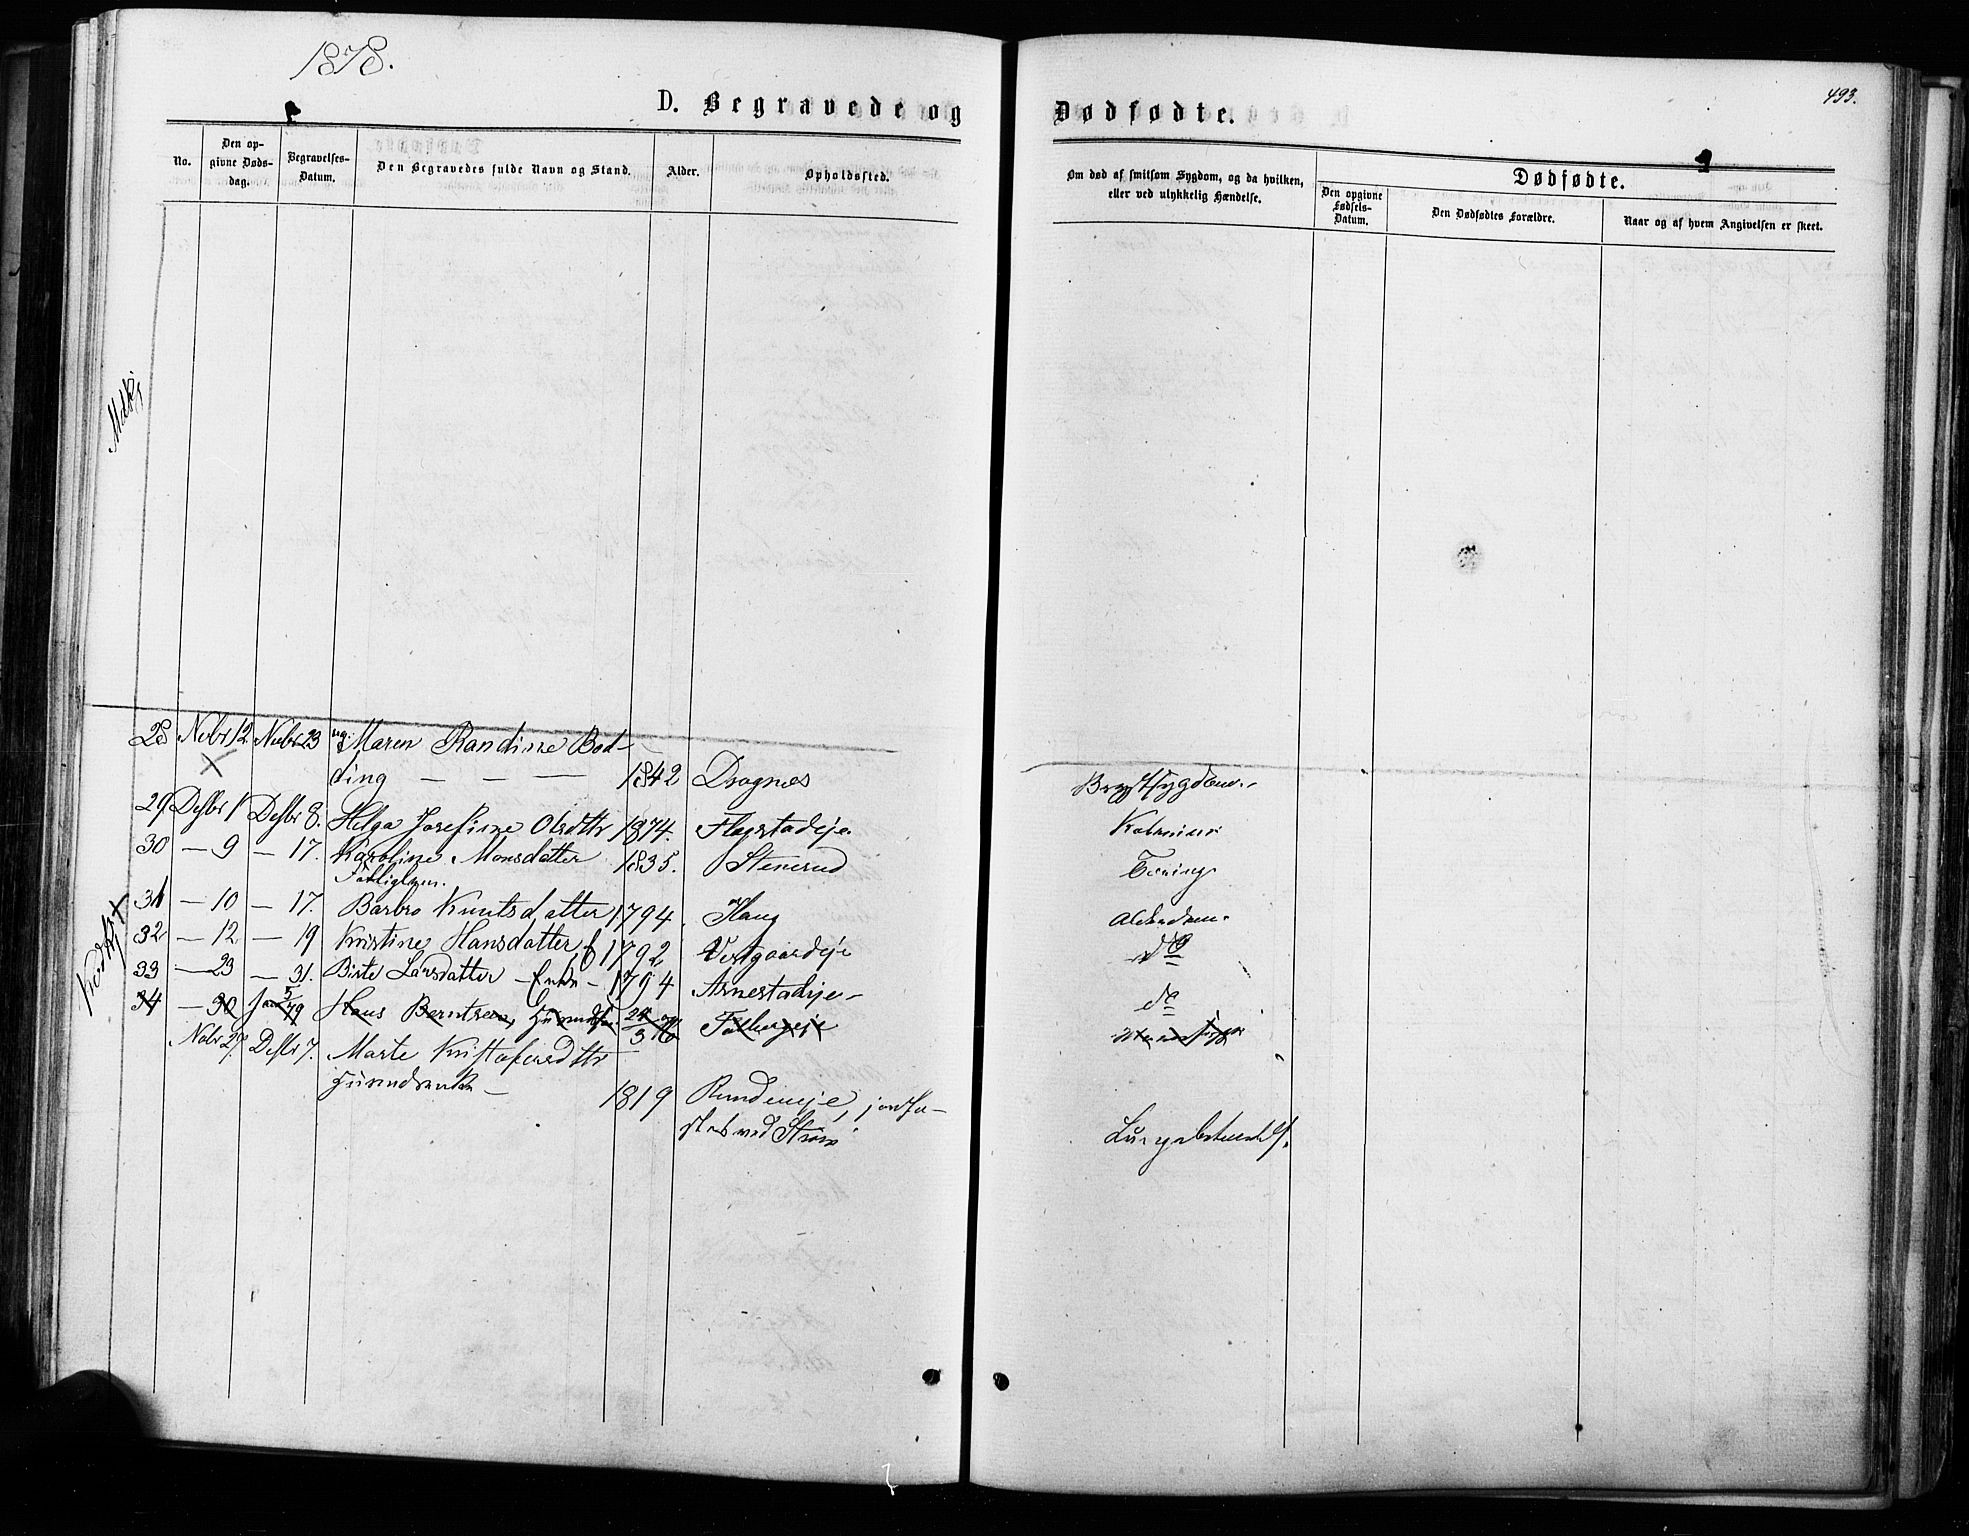 1878.
493.
D. Begravede og Dødfødte.
No.
Den op-
givne Døds-
dag.
Begravelses-
Datum.
Den Begravedes fulde Navn og Stand.
Alder.
Opholdssted.
Om død af smitsom Sygdom, og da hvilken,
eller ved ulykkelig Hændelse.
Dødfødte.
Den opgivne
Fødsels-
Datum.
Den Dødfødtes Forældre.
Naar og af hvem Angivelsen er skeet.
28 Nvbr 12 Nvbr 23 ug: Maren Randine Bod-
ding — — — 1842 Dragnæs Brystsygdom.
29 Desbr 1 Desbr 8. Helga Josefine Olsdttr 1874. Flagstadeje.
30 — 9 — 17. Karoline Monsdatter 1835. Stenerud Tæring
Fattiglem.
31 — 10 — 17. Barbro Knutsdatter 1794. Haug Alderdom.
32 — 12 — 19 Kristine Hansdatter f 1792 Vestgaardeje do
33 — 23 — 31. Birte Larsdatter Enke — 1794 Arnestadeje — do
34 — 30 Jan 5/79 Hans Berntsen,
Nvbr 27. Desbr 7. Marte Kristofersdttr
Huusmdsenke — 1819 Rundeneje, jordfæ-
stet ved Strøm Lungebetændels.